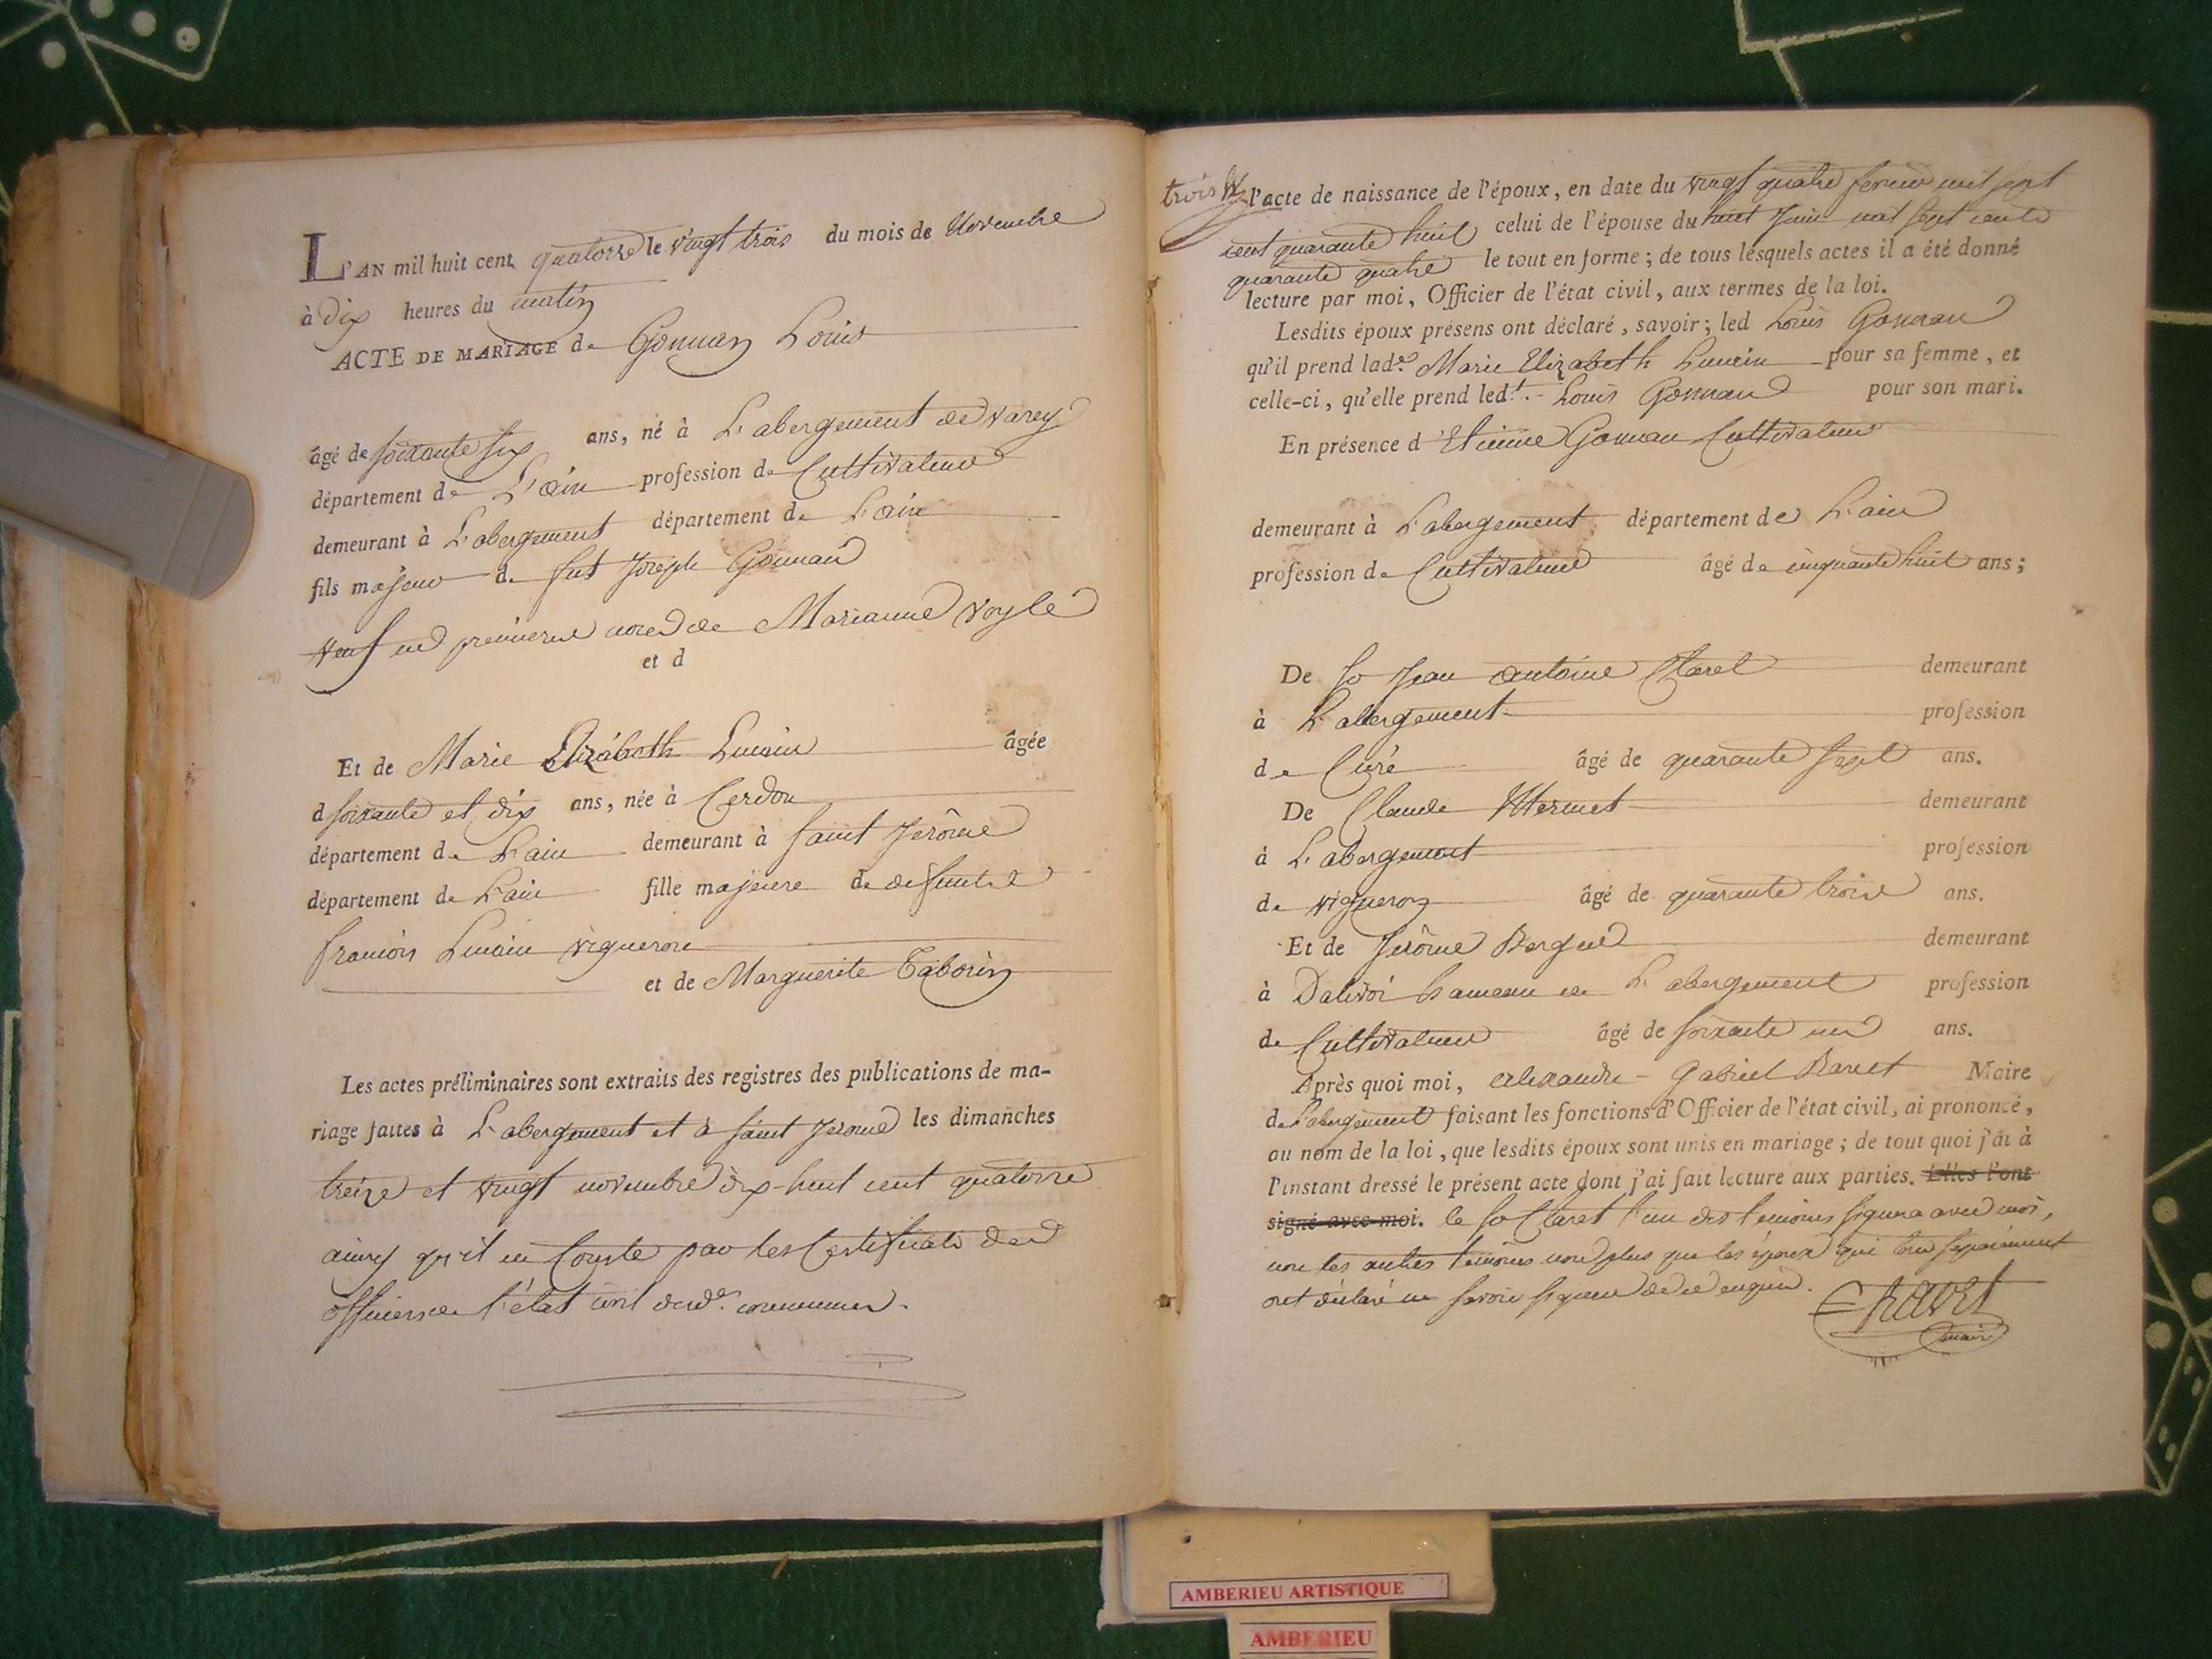 L'AN mil huit cent quatorze le vingt trois du mois de Novembre
à dix heures du matin
ACTE DE MARIAGE de Gonnan Louis
âgé de soixante six ans, né à L'abergement de varey
département de L'ain profession de Cultivateur
demeurant à L'abergement département de L'ain
fils majeur de fut Joseph Gonnan
veuf en premieres noces de Marianne Voyle
et d
Et de Marie Elizabeth Lucain âgée
d soixante et dix ans, née à Cerdon
département de L'ain demeurant à saint Jerôme
département de L'ain fille majeure de defunt
françois Lucain vigneron
et de Marguerite Taborin
Les actes préliminaires sont extraits des registres des publications de ma-
riage faites à L'abergement et à saint Jerome les dimanches
treize et vingt novembre dix-huit cent quatorze
ainsy qu'il en Conste par les Certificats des
officiers de l'état civil desd. communes.
trois l'acte de naissance de l'époux, en date du vingt quatre fevrier mil sept
cent quarante huit celui de l'épouse du huit Juin mil sept cent
quarante quatre le tout en forme ; de tous lesquels actes il a été donné
lecture par moi, Officier de l'état civil, aux termes de la loi.
Lesdits époux présens ont déclaré, savoir ; led Louis Gonnan
qu'il prend lade. Marie Elizabeth Lucain pour sa femme, et
celle-ci, qu'elle prend ledt. Louis Gonnan pour son mari.
En présence d'Etienne Gonnan Cultivateur
demeurant à L'abergement département de L'ain
profession de Cultivateur âgé de cinquante huit ans ;
De Sr Jean antoine Claret demeurant
à L'abergement profession
de Curé âgé de quarante sept ans.
De Claude Mermet demeurant
à L'abergement profession
de vigneron âgé de quarante trois ans.
Et de Jerôme demeurant
à Dalivoi hameau de L'abergement profession
de Cultivateur âgé de soixante un ans.
Après quoi moi, alexandre - Gabriel Maire
de L'abergement faisant les fonctions d'Officier de l'état civil, ai prononcé,
au nom de la loi, que lesdits époux sont unis en mariage ; de tout quoi j'ai à
l'instant dressé le présent acte dont j'ai fait lecture aux parties. Elles l'ont
signé avec moi. le Sr Claret l'un des temoins signera avec moi,
non les autres temoins non plus que les époux qui tous separément
ont déclaré ne savoir signer de ce enquis.
maire
AMBERIEU ARTISTIQUE
AMBERIEU